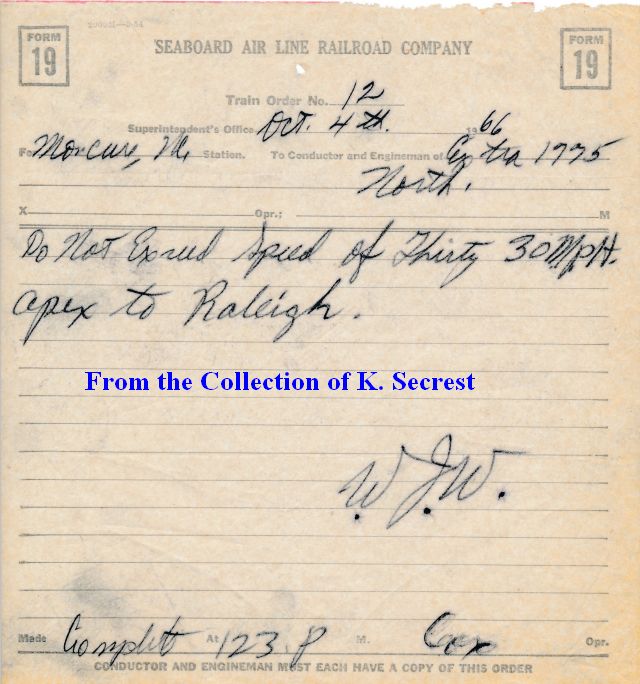 FORM 19
SEABOARD AIR LINE RAILROAD COMPANY
FORM 19
Train Order No. 12
Superintendent's Office Oct. 4th. 1966
For Moncure, N. Station. To Conductor and Engineman of Extra 1775
North.
X Opr.; M
Do Not Exceed Speed of Thirty 30 MPH.
apex to Raleigh.
From the Collection of K. Secrest
W.J.W.
Made Complete At 123 P M. Cox Opr.
CONDUCTOR AND ENGINEMAN MUST EACH HAVE A COPY OF THIS ORDER